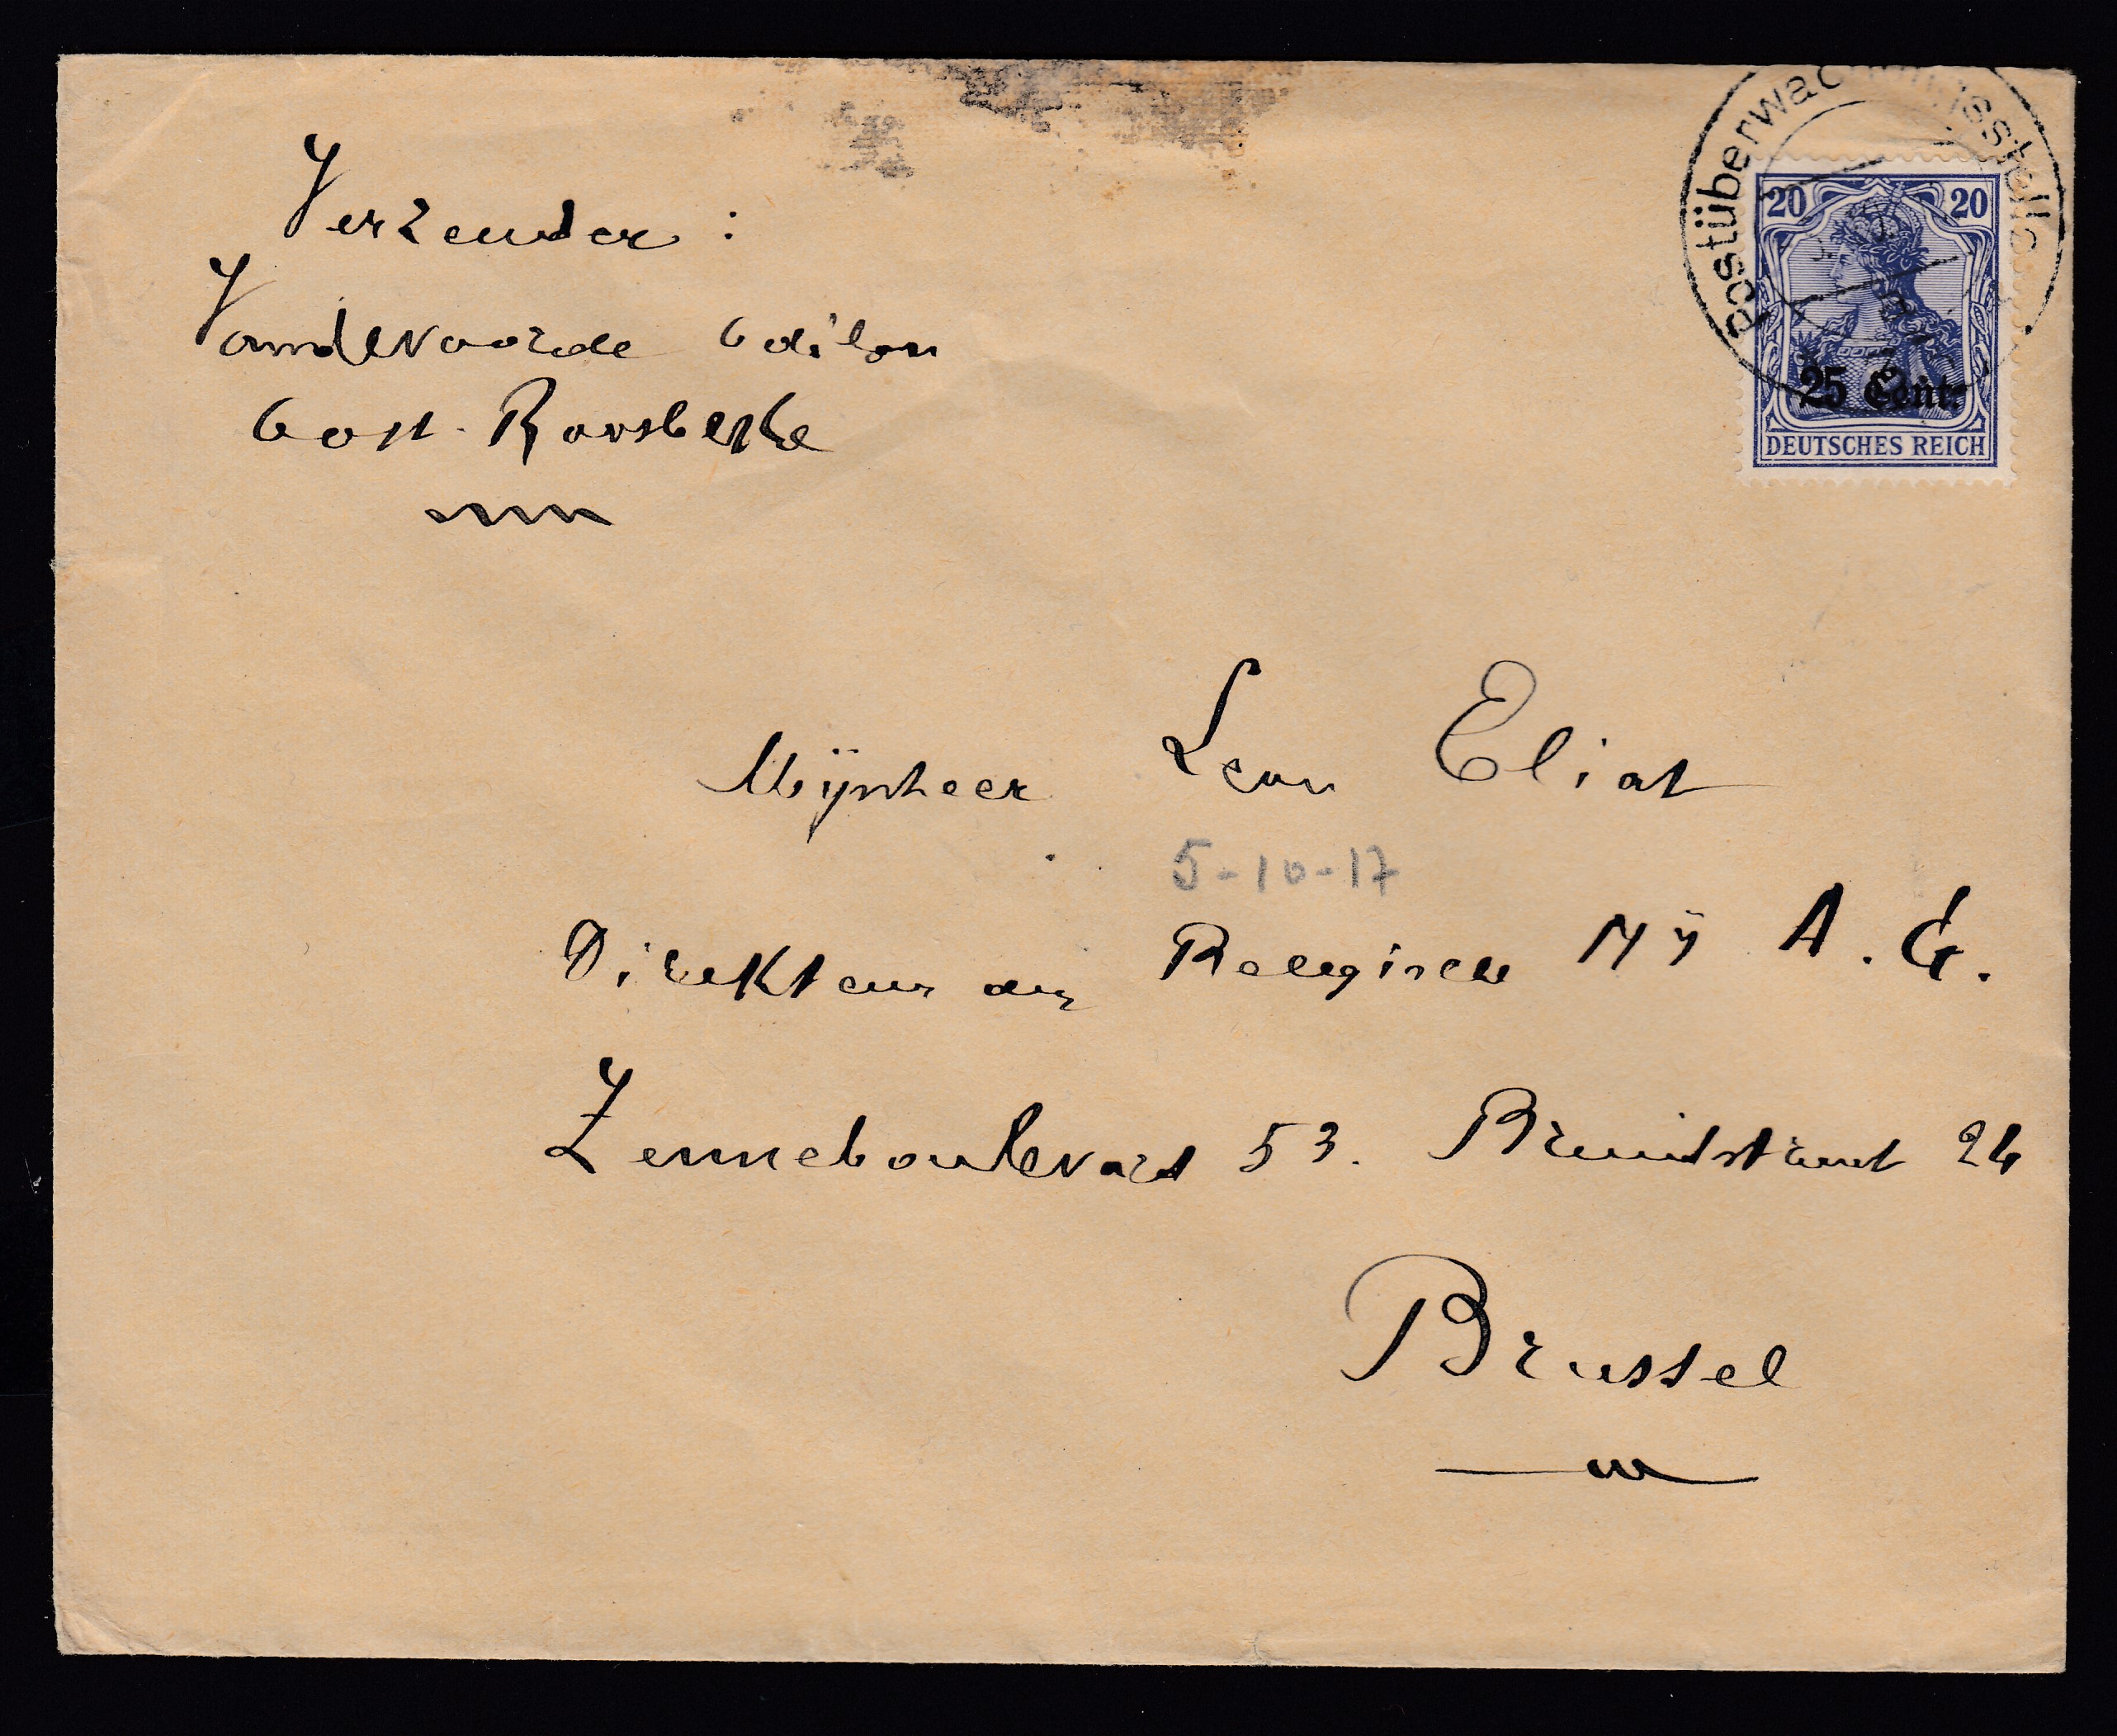 Verzender :
Vandevoorde Odilon
Oost. Roosbeke
Postüberwachungsstelle
20 20
25 Cent.
DEUTSCHES REICH
Mijnheer Leon Eliat
5-10-17
Direkteur der Belgische Mij A. G.
Zenneboulevard 53. 24
Brussel